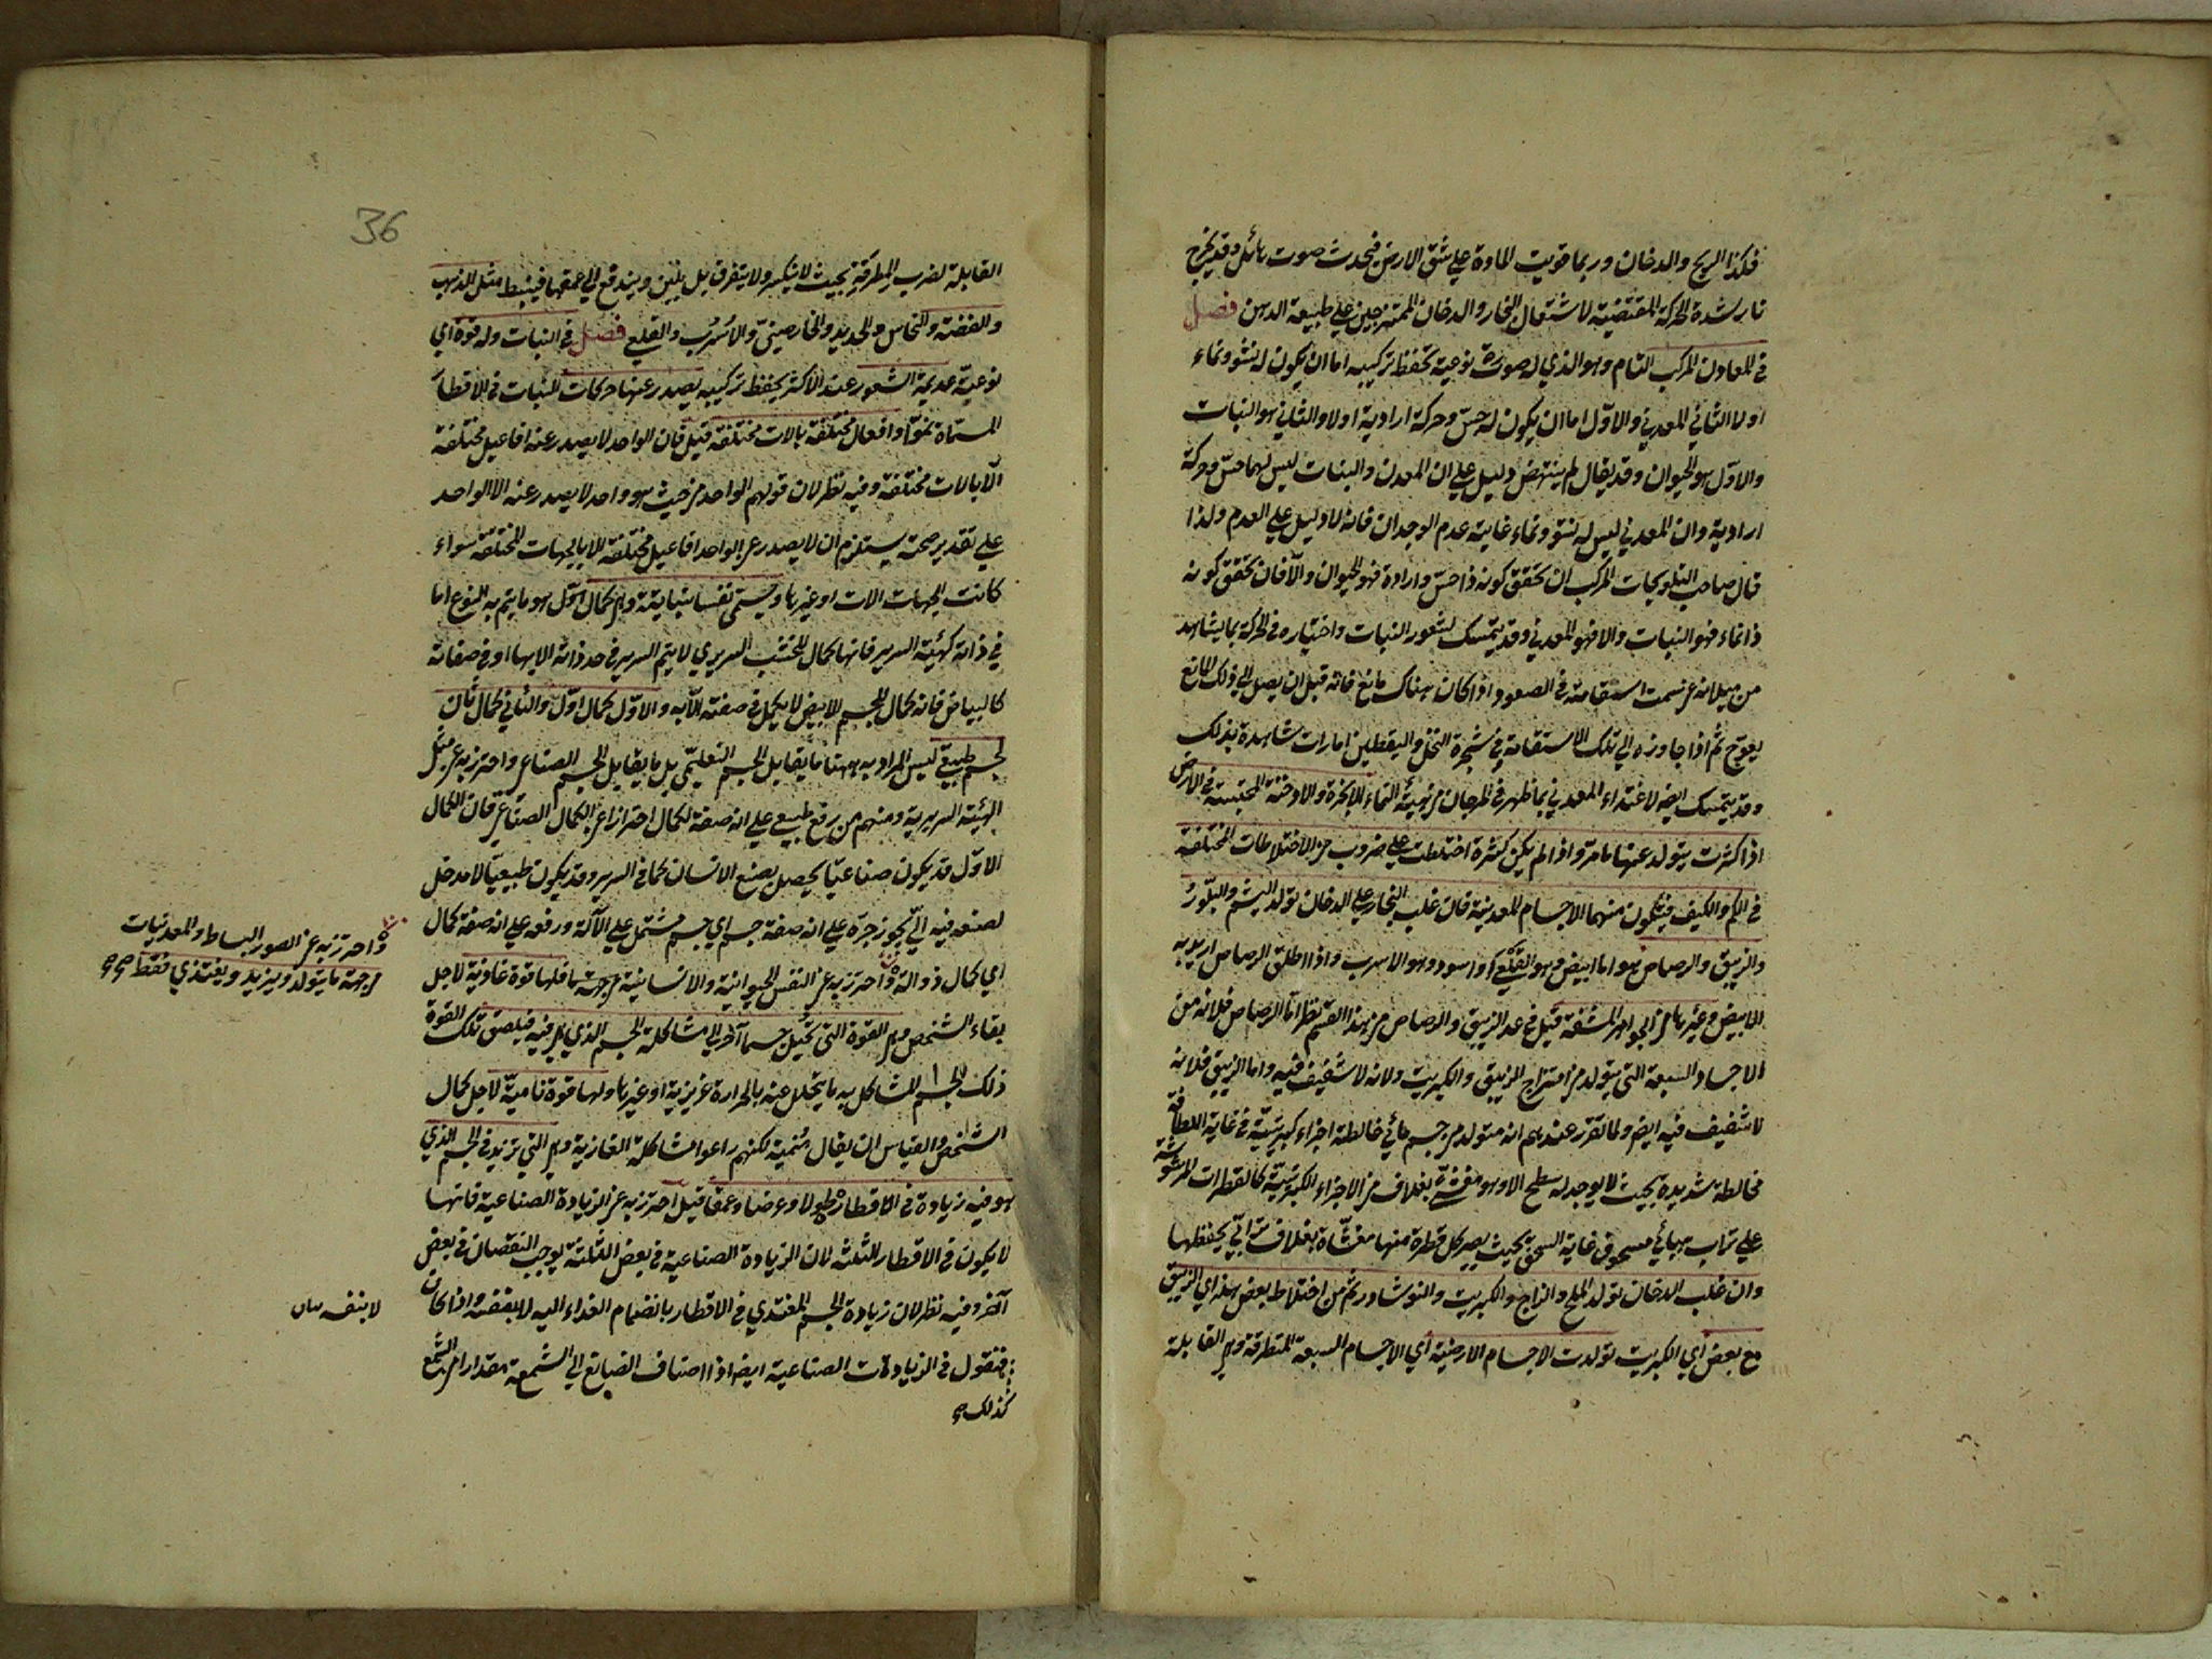 فكذا الريح والدخان وربما قويت المادة علي شق الارض فيحدث صوت هائل وقد يخرج
نار لشدة الحركة المقتضية لاشتعال البخار والدخان الممتزجين علي طبيعة الدهن فصل
في المعادن المركب التام وهو الذي له صورة نوعية تحفظ تركيبه اما ان يكون له نشو ونماء
اولا الثاني المعدني والاول اما ان يكون له حسّ وحركة ارادية اولا والثاني هو النبات
والاول هو الحيوان وقد يقال لم ينتهض دليل علي ان المعدن والنبات ليس لهما حسّ وحركة
ارادية وان المعدني ليس له نشو ونماء غايته عدم الوجدان فانه لا دليل علي العدم ولذا
قال صاحب التلويحات المركب ان تحقق كونه ذا حسّ وارادة فهو الحيوان والا فان تحقق كونه
ذا نماء فهو النبات والا فهو المعدني وقد يتمسك لشعور النبات واختياره في الحركة بما يشاهد
من ميلانه عن سمت استقامته في الصعود اذا كان هناك مانع فانه قبل ان يصل الي ذلك المانع
يعوج ثم اذا جاوزه الي تلك الاستقامة في شجرة النخل واليقطين امارات شاهدة بذلك
وقد يتمسك ايضا لاغتذاء المعدني بما ظهر في المرجان من هيئة النماء الابخرة والادخنة المحتبسة في الارض
اذا كثرت يتولد عنها مامر واذا لم يكن كثيرة اختلطت علي ضروب من الاختلاطات المختلفة
في الكم والكيف فيتكون منهما الاجسام المعدنية فان غلب البخار علي الدخان تولد اليشم والبلّور
والزيبق والرصاص هو اما ابيض وهو القلعي او اسود وهو الاسرب واذا اطلق الرصاص اريد به
الابيض وغيرها من الجواهر المشفة قيل في عد الزيبق والرصاص من هذا القسم نظر اما الرصاص فلانه من
الاجساد السبعة التي يتولد من امتزاج الزيبق والكبريت ولانه لا شفيف فيه واما الزيبق فلانه
لا شفيف فيه ايضا ولما تقرر عندهم انه متولد من جسم مائي خالطه اجزاء كبريتيّة في غاية اللطافة
مخالطة شديدة بحيث لا يوجد له سطح الا وهو مغشّي بغلاف من الاجزاء الكبريتيّة كالقطرات المرشوشة
علي تراب هبائي مسحوق غاية السحق بحيث يصير كل قطرة منها مغشّاة بغلاف ترابيّ يحفظها
وان غلب الدخان تولد الملح والزاج والكبريت والنوشادر ثم من اختلاط بعض هذه اي الزيبق
مع بعض اي الكبريت تولدت الاجسام الارضية اي الاجسام السبعة المتطرقة وهي القابلة
36
القابلة لضرب المطرقة بحيث لا ينكسر ولا يتفرق بل يلين ويندفع الي عمقها فينبسط مثل الذهب
والفضة والنحاس والحديد والخارصينيّ والاُسْرُب والقلعي فصل في النبات وله قوة اي
نوعيّة عديمة الشعور عند الاكثر يحفظ تركيبه يصدر عنها حركات النبات في الاقطار
المسماة نموّا وافعال مختلفة بالات مختلفة قيل فان الواحد لا يصدر عنه افاعيل مختلفة
الّا بالات مختلفة وفيه نظر لان قولهم الواحد من حيث هو واحد لا يصدر عنه الا الواحد
علي تقدير صحته يستلزم ان لا يصدر عن الواحد افاعيل مختلفة الا بالجهات المختلفة سواء
كانت الجهات الات او غيرها ويسمّي نفسا نباتية وهي كمال اوّل هو ما يتم به النوع اما
في ذاته كهيئة السرير فانها كمال للخشب السريري لا يتم السرير في حد ذاته الا بها او في صفاته
كالبياض فانه كمال للجسم الابيض لا يكمل في صفته الّا به والاوّل كمال اوّل والثاني كمال ثان
لجسم طبيعي ليس المراد به ههنا ما يقابل الجسم التعليمّي بل ما يقابل الجسم الصناعي واحترز به عن مثل
الهيئة السريرية ومنهم من رفع طبيعي علي انه صفة لكمال احترازا عن الكمال الصناعي فان الكمال
الاوّل قد يكون صناعيّا يحصل بصنع الانسان كما في السرير وقد يكون طبيعيّا لا مدخل
لصنعه فيه آليّ يجوز جرّه علي انه صفة جسم اي جسم مشتمل علي الآلة ورفعه علي انه صفة كمال
اي كمال ذو الة واحترز به عن النفس الحيوانية والانسانية من جهة ما فلها قوة غاذية لاجل
بقاء الشخص وهي القوة التي تحيل جسما آخر الي مشاكلة الجسم الذي هي فيه فيلصق تلك القوة
ذلك الجسم المشاكل به بدل ما يتحلل عنه بالحرارة غريزية او غيرها ولها قوة ناميّة لاجل كمال
الشخص والقياس ان يقال مُنمية لكنهم راعوا مشاكلة الغاذية وهي التي تزيد في الجسم الذي
هو فيه زيادة في الاقطار طولا وعرضا وعمقا قيل احترز به عن الزيادة الصناعية فانها
لا يكون في الاقطار الثلثة لان الزيادة الصناعية في بعض الثلثة يوجب النقصان في بعض
آخر وفيه نظر لان زيادة الجسم المغتذي في الاقطار بانضمام الغذاء اليه لا بنفسه واذا كان
فنقول في الزيادات الصناعية ايضا اذا اضاف الصانع الي الشمعة مقدارا من الشمع
كذلك
واحترز به عن الصور البسائط والمعدنيات
من جهة ما يتولد ويزيد ويغتذي فقط صح
لا بنفسه